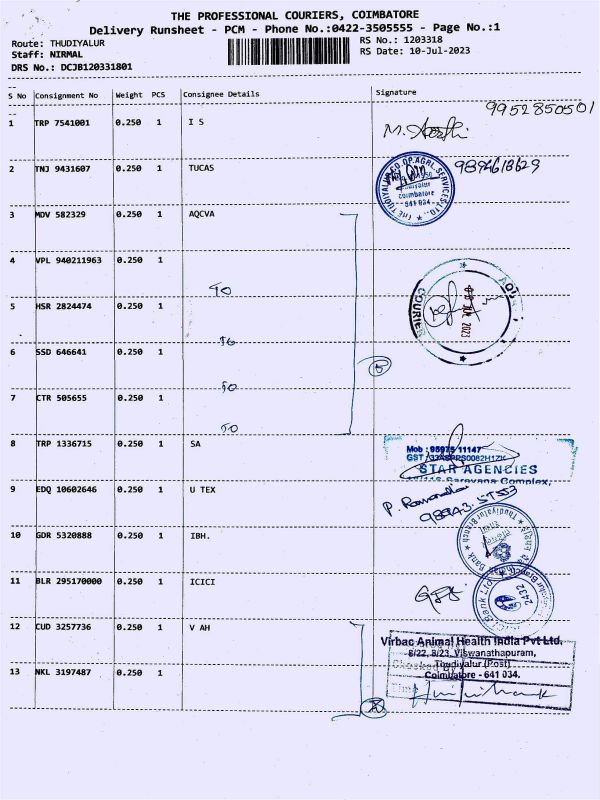 THE PROFESSIONAL COURIERS, COIMBATORE
Delivery Runsheet - PCM - Phone No.:0422-3505555 - Page No.:1
Route: THUDIYALUR
RS No.: 1203318
Staff: NIRMAL
RS Date: 10-Jul-2023
DRS No.: DCJB120331801
S No Consignment No Weight PCS Consignee Details Signature
9952850501
1 TRP 7541001 0.250 1 I S
2 TNJ 9431607 0.250 1 TUCAS
9894618629
THE THUDIYALUR CO.OP.AGRL.SERVICES LTD.,
Thudiyalur
coimbatore
641 034.
3 MDV 582329 0.250 1 AQCVA
4 VPL 940211963 0.250 1
TO
COURIER
2023
5 HSR 2824474 0.250 1
TO
6 SSD 646641 0.250 1
TO
5
7 CTR 505655 0.250 1
TO
8 TRP 1336715 0.250 1 SA
Mob : 95975 11147
STAR AGENCIES
Complex,
9 EDQ 10602646 0.250 1 U TEX
10 GDR 5320888 0.250 1 IBH.
Thudiyalur Branch
Bank
11 BLR 295170000 0.250 1 ICICI
Bank Ltd
2432
12 CUD 3257736 0.250 1 V AH
Virbac Animal Health India Pvt Ltd.
8/22, 8/23, Viswanathapuram,
Thudiyalur (Post)
Coimbatore - 641 034.
13 NKL 3197487 0.250 1